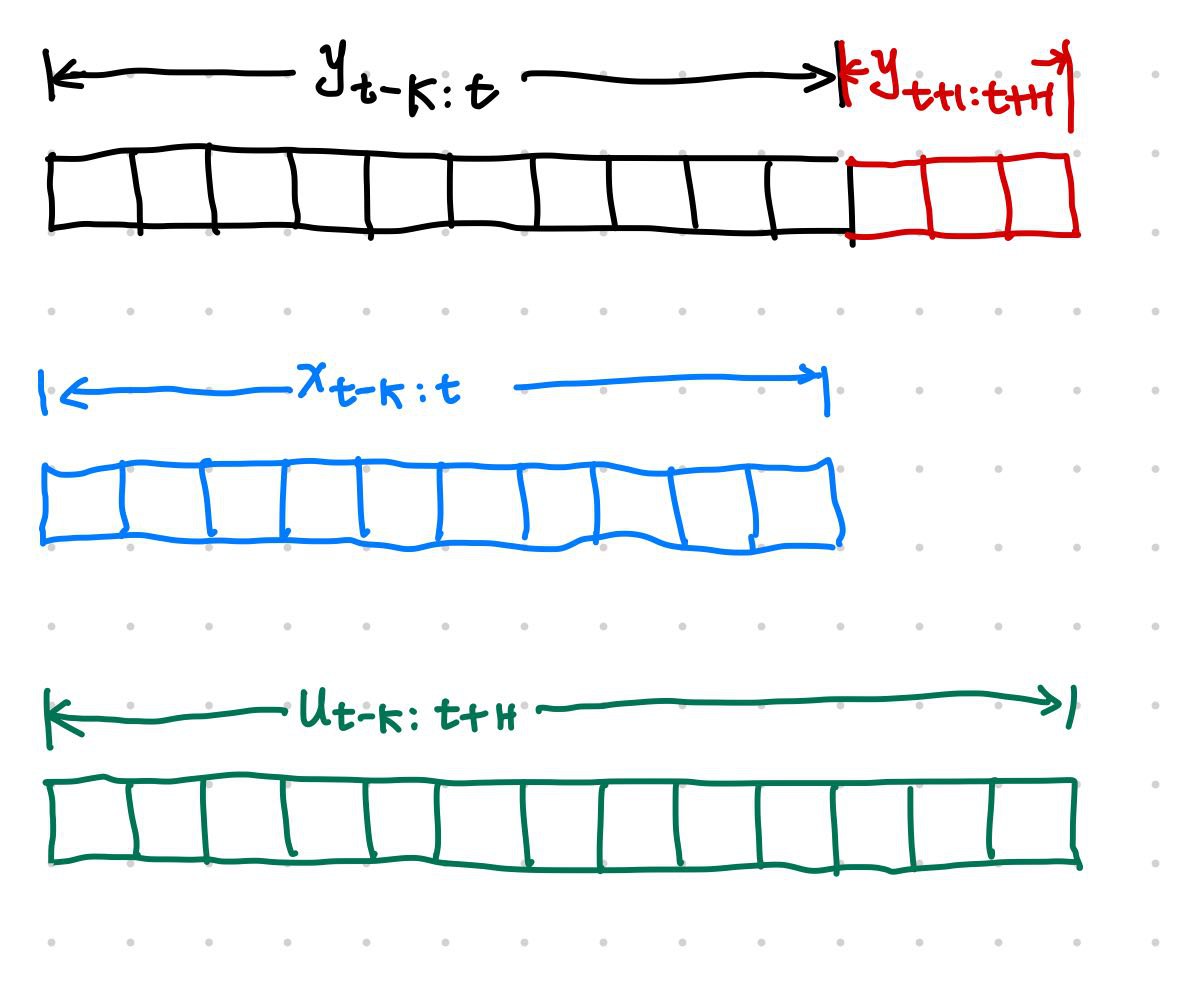 y t-k:t y t+1:t+H
x t-k:t
u t-k:t+H